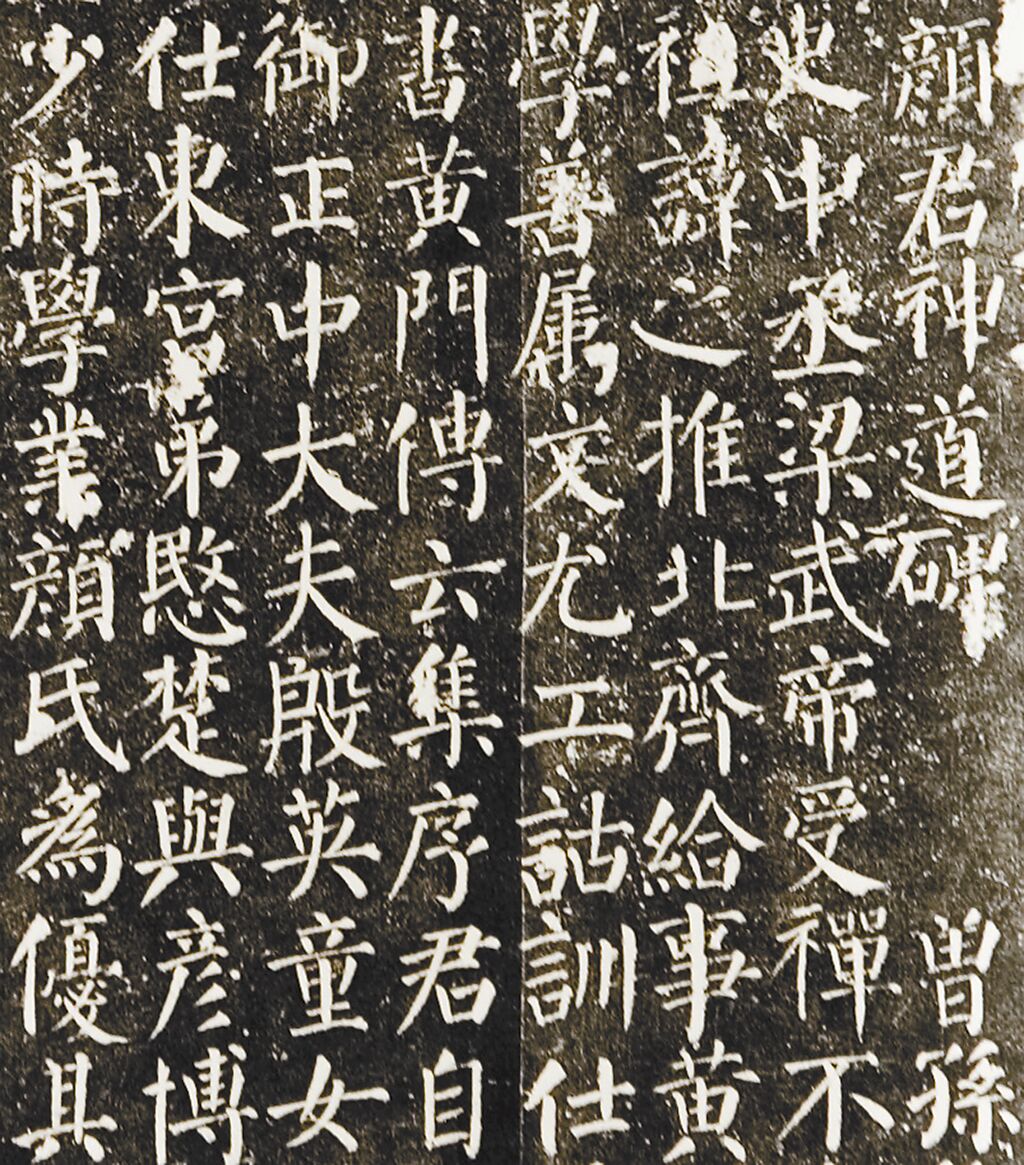 顏君神道碑 曾孫
史中丞梁武帝受禪不
祖諱之推北齊給事黃
學善屬文尤工詁訓仕
書黃門傳云集序君自
御正中大夫殷英童女
仕東宮弟愍楚與彥博
少時學業顏氏為優其